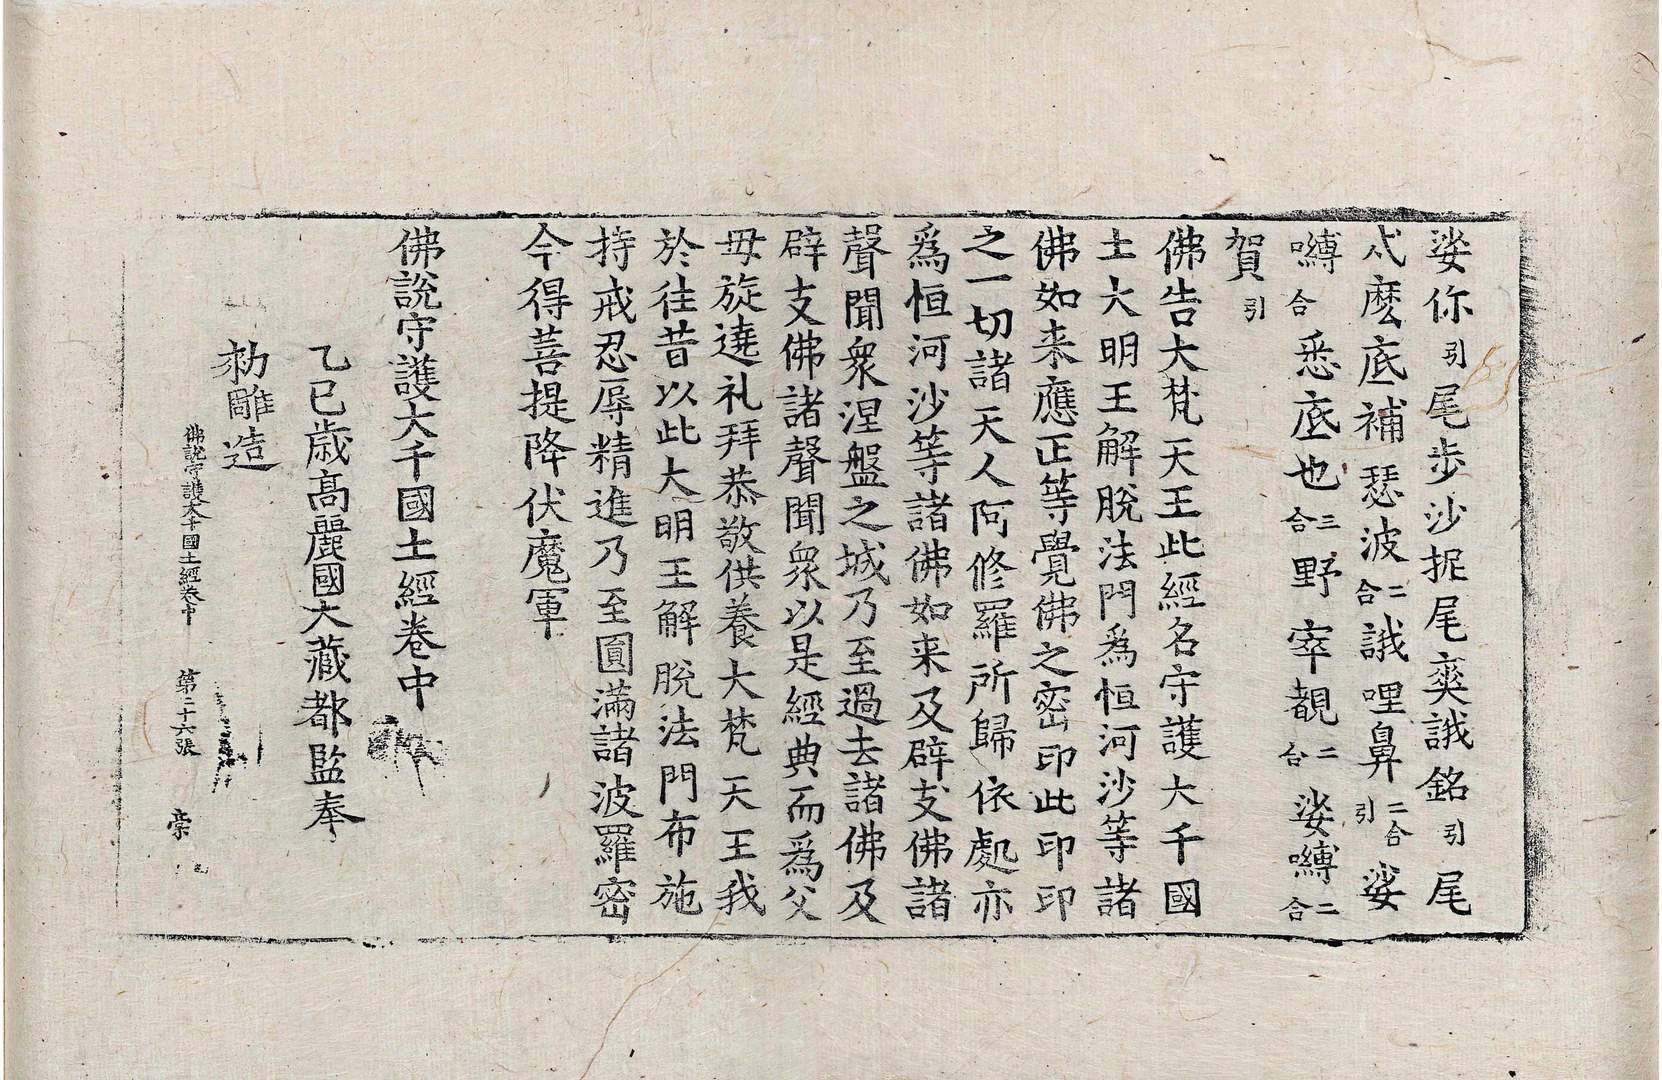 娑你引尾步沙抳尾奭誐銘引尾
尒麽底補瑟波二合誐哩鼻二合引娑
嚩合悉底也三合野宰覩二合娑嚩二合
賀引
佛告大梵天王此經名守護大千國
土大明王解脫法門爲恒河沙等諸
佛如来應正等覺佛之密印此印印
之一切諸天人阿修羅所歸依處亦
爲恒河沙等諸佛如来及辟支佛諸
聲聞衆涅盤之城乃至過去諸佛及
辟支佛諸聲聞衆以是經典而爲父
母旋遶礼拜恭敬供養大梵天王我
於往昔以此大明王解脫法門布施
持戒忍辱精進乃至圓滿諸波羅密
今得菩提降伏魔軍
佛說守護大千國土經卷中
乙巳歲高麗國大藏都監奉
勑雕造
佛說守護大千國土經卷中 第二十六張